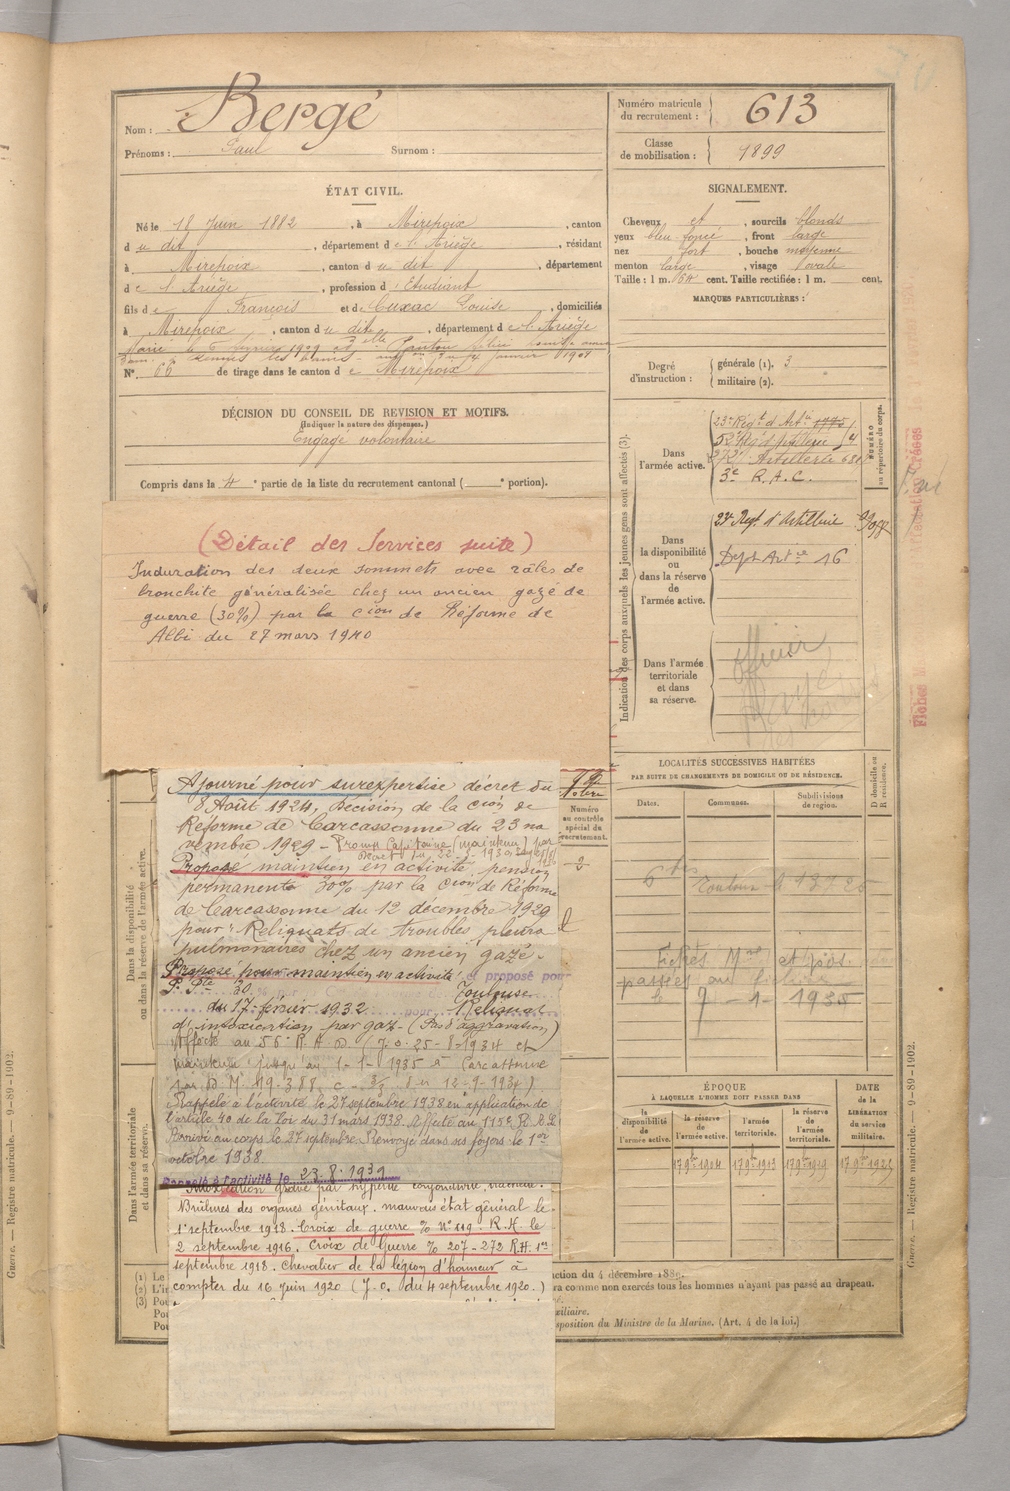 Nom : Bergé
Prénoms : Paul Surnom :
Numéro matricule du recrutement : 613
Classe de mobilisation : 1899
ÉTAT CIVIL.
Né le 18 Juin 1882, à Mirepoix, canton
du dit, département de l'Ariège, résidant
à Mirepoix, canton du dit, département
de l'Ariège, profession d'Etudiant
fils de François et de Cuxac Louise, domiciliés
à Mirepoix, canton du dit, département de l'Ariège
N° 66 de tirage dans le canton de Mirepoix
SIGNALEMENT.
Cheveux et, sourcils blonds
yeux bleu foncé, front large
nez fort, bouche moyenne
menton large, visage ovale
Taille : 1 m. 64 cent. Taille rectifiée : 1 m. cent.
MARQUES PARTICULIÈRES :
Degré d'instruction : générale (1). 3
militaire (2).
DÉCISION DU CONSEIL DE REVISION ET MOTIFS.
(Indiquer la nature des dispenses.)
Engagé volontaire
Compris dans la 4e partie de la liste du recrutement cantonal ( e portion).
(Détail des Services suite)
Induration des deux sommets avec râles de
bronchite généralisée chez un ancien gazé de
guerre (30%) par la cion de Réforme de
Albi du 27 mars 1940
Ajourné pour surexpertise décret du
8 Août 1924. Décision de la cion de
Réforme de Carcassonne du 23 no
vembre 1929 - Promu Capitaine (maintenu) par
Proposé maintien en activité, pension
permanente 30% par la cion de Réforme
de Carcassonne du 12 décembre 1929
pour : Reliquats de troubles pleuro
pulmonaires chez un ancien gazé.
Proposé pour maintien en activité et proposé pour
P. Pte 30 % par Toulouse
du 17 février 1932 pour Reliquat
d'intoxication par gaz - (Pas d'aggravation)
Affecté au 56e R.A.D (J.O. 25-8-1934 et
maintenu jusqu'au 1-1-1935 à Carcassonne
Rappelé à l'activité le 27 septembre 1938 en application de
l'article 40 de la loi du 31 mars 1938. Affecté au 115e R.A.L
Arrivé au corps le 27 septembre. Renvoyé dans ses foyers le 1er
octobre 1938.
Rappelé à l'activité le 23.8.1939
Intoxication grave par hypérite conjonctivite
Brûlures des organes génitaux. mauvais état général le
1er septembre 1918. Croix de guerre % N° 119. R.H. le
2 septembre 1916. Croix de Guerre % 207-272 R.H. 1er
septembre 1918. Chevalier de la légion d'honneur à
compter du 16 Juin 1920 (J.O. du 4 septembre 1920.)
Indication des corps auxquels les jeunes gens sont affectés (3).
Dans l'armée active.
23e Régt d'Artie
52e Rég d'Artillerie
272e Artillerie
3e R.A.C.
NUMÉRO au répertoire du corps.
Dans la disponibilité ou dans la réserve de l'armée active.
23e Regt d'Artillerie
Dépôt Artie 16
Dans l'armée territoriale et dans sa réserve.
Officier
LOCALITÉS SUCCESSIVES HABITÉES
PAR SUITE DE CHANGEMENTS DE DOMICILE OU DE RÉSIDENCE.
Dates. Communes. Subdivisions de region. D domicile ou R résidence.
Toulouse le 13 7 25
Fiches Mle et pos.
passées au fichier
le 7-1-1935
Numéro au contrôle spécial du recrutement.
2
Dans la disponibilité ou dans la réserve de l'armée active.
Dans l'armée territoriale et dans sa réserve.
ÉPOQUE
À LAQUELLE L'HOMME DOIT PASSER DANS
la disponibilité de l'armée active. la réserve de l'armée active. l'armée territoriale. la réserve de l'armée territoriale.
DATE de la LIBÉRATION du service militaire.
17 9bre 1904 17 9bre 1913 17 9bre 1919 17 9bre 1925
(1) Le
(2) L'in
(3) Pou
Pou
Pou
ction du 4 décembre 1889.
ra comme non exercés tous les hommes n'ayant pas passé au drapeau.
xiliaire.
sposition du Ministre de la Marine. (Art. 4 de la loi.)
Guerre. — Registre matricule. — 9-89-1902.
Guerre. — Registre matricule. — 9-89-1902.